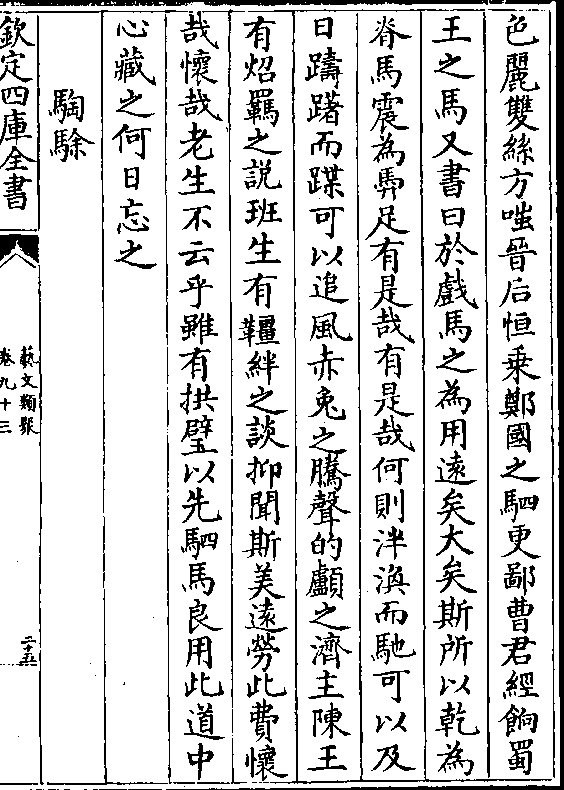 色麗雙絲方嗤晉后恒乗鄭國之駟更鄙曹君經餉蜀
王之馬又書曰於戲馬之為用遠矣大矣斯所以乾為
脊馬震為馵足有是哉有是哉何則泮渙而馳可以及
日躊躇而蹀可以追風赤兔之騰聲的顱之濟主陳王
有炤羈之説班生有韁絆之談抑聞斯美遠勞此費懷
哉懷哉老生不云乎雖有拱璧以先駟馬良用此道中
心藏之何日忘之
騊駼
欽定四庫全書
藝文類聚
卷九十三
二十五